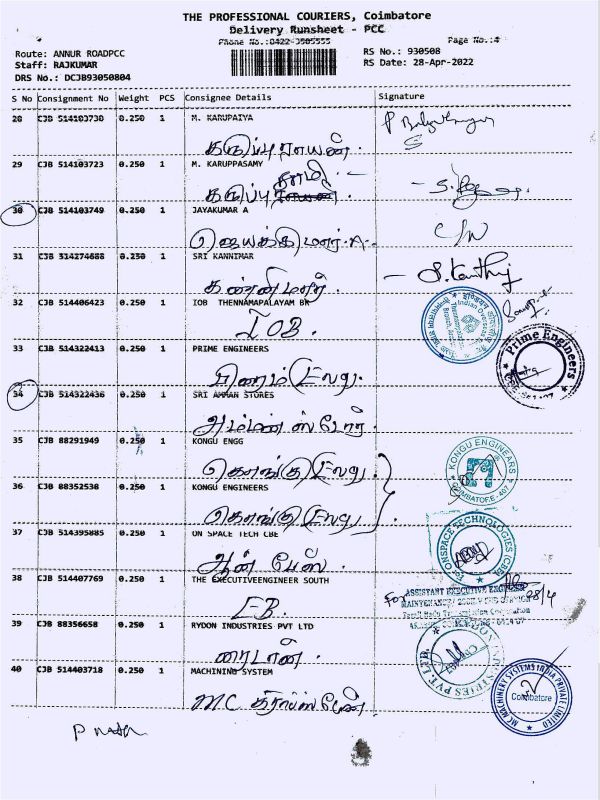 THE PROFESSIONAL COURIERS, Coimbatore
Delivery Runsheet - PCC
Phone No.:0422-3505555
Page No.:4
Route: ANNUR ROADPCC
RS No.: 930508
Staff: RAJKUMAR
RS Date: 28-Apr-2022
DRS No.: DCJB93050804
S No Consignment No Weight PCS Consignee Details Signature
28 CJB 514103730 0.250 1 M. KARUPAIYA
29 CJB 514103723 0.250 1 M. KARUPPASAMY
சாமி
கருப்பு
30 CJB 514103749 0.250 1 JAYAKUMAR A
ஜெயக்குமார்.A.
31 CJB 514274688 0.250 1 SRI KANNIMAR
கன்னிமார்
32 CJB 514406423 0.250 1 IOB THENNAMAPALAYAM BR
IOB.
33 CJB 514322413 0.250 1 PRIME ENGINEERS
Prime Engineers
34 CJB 514322436 0.250 1 SRI AMMAN STORES
அம்மன் ஸ்டோர்
35 CJB 88291949 0.250 1 KONGU ENGG
KONGU ENGINEERS
36 CJB 88352538 0.250 1 KONGU ENGINEERS
COIMBATORE
37 CJB 514395885 0.250 1 ON SPACE TECH CBE
ONSPACE TECHNOLOGIES (CBE)
ஆன் பேஸ்
38 CJB 514407769 0.250 1 THE EXECUTIVEENGINEER SOUTH
ASSISTANT EXECUTIVE ENGINEER
EB.
For
28/4
39 CJB 88356658 0.250 1 RYDON INDUSTRIES PVT LTD
ரைடான்
40 CJB 514403718 0.250 1 MACHINING SYSTEM
MC
MC MACHINERY SYSTEMS INDIA PRIVATE LIMITED
Coimbatore